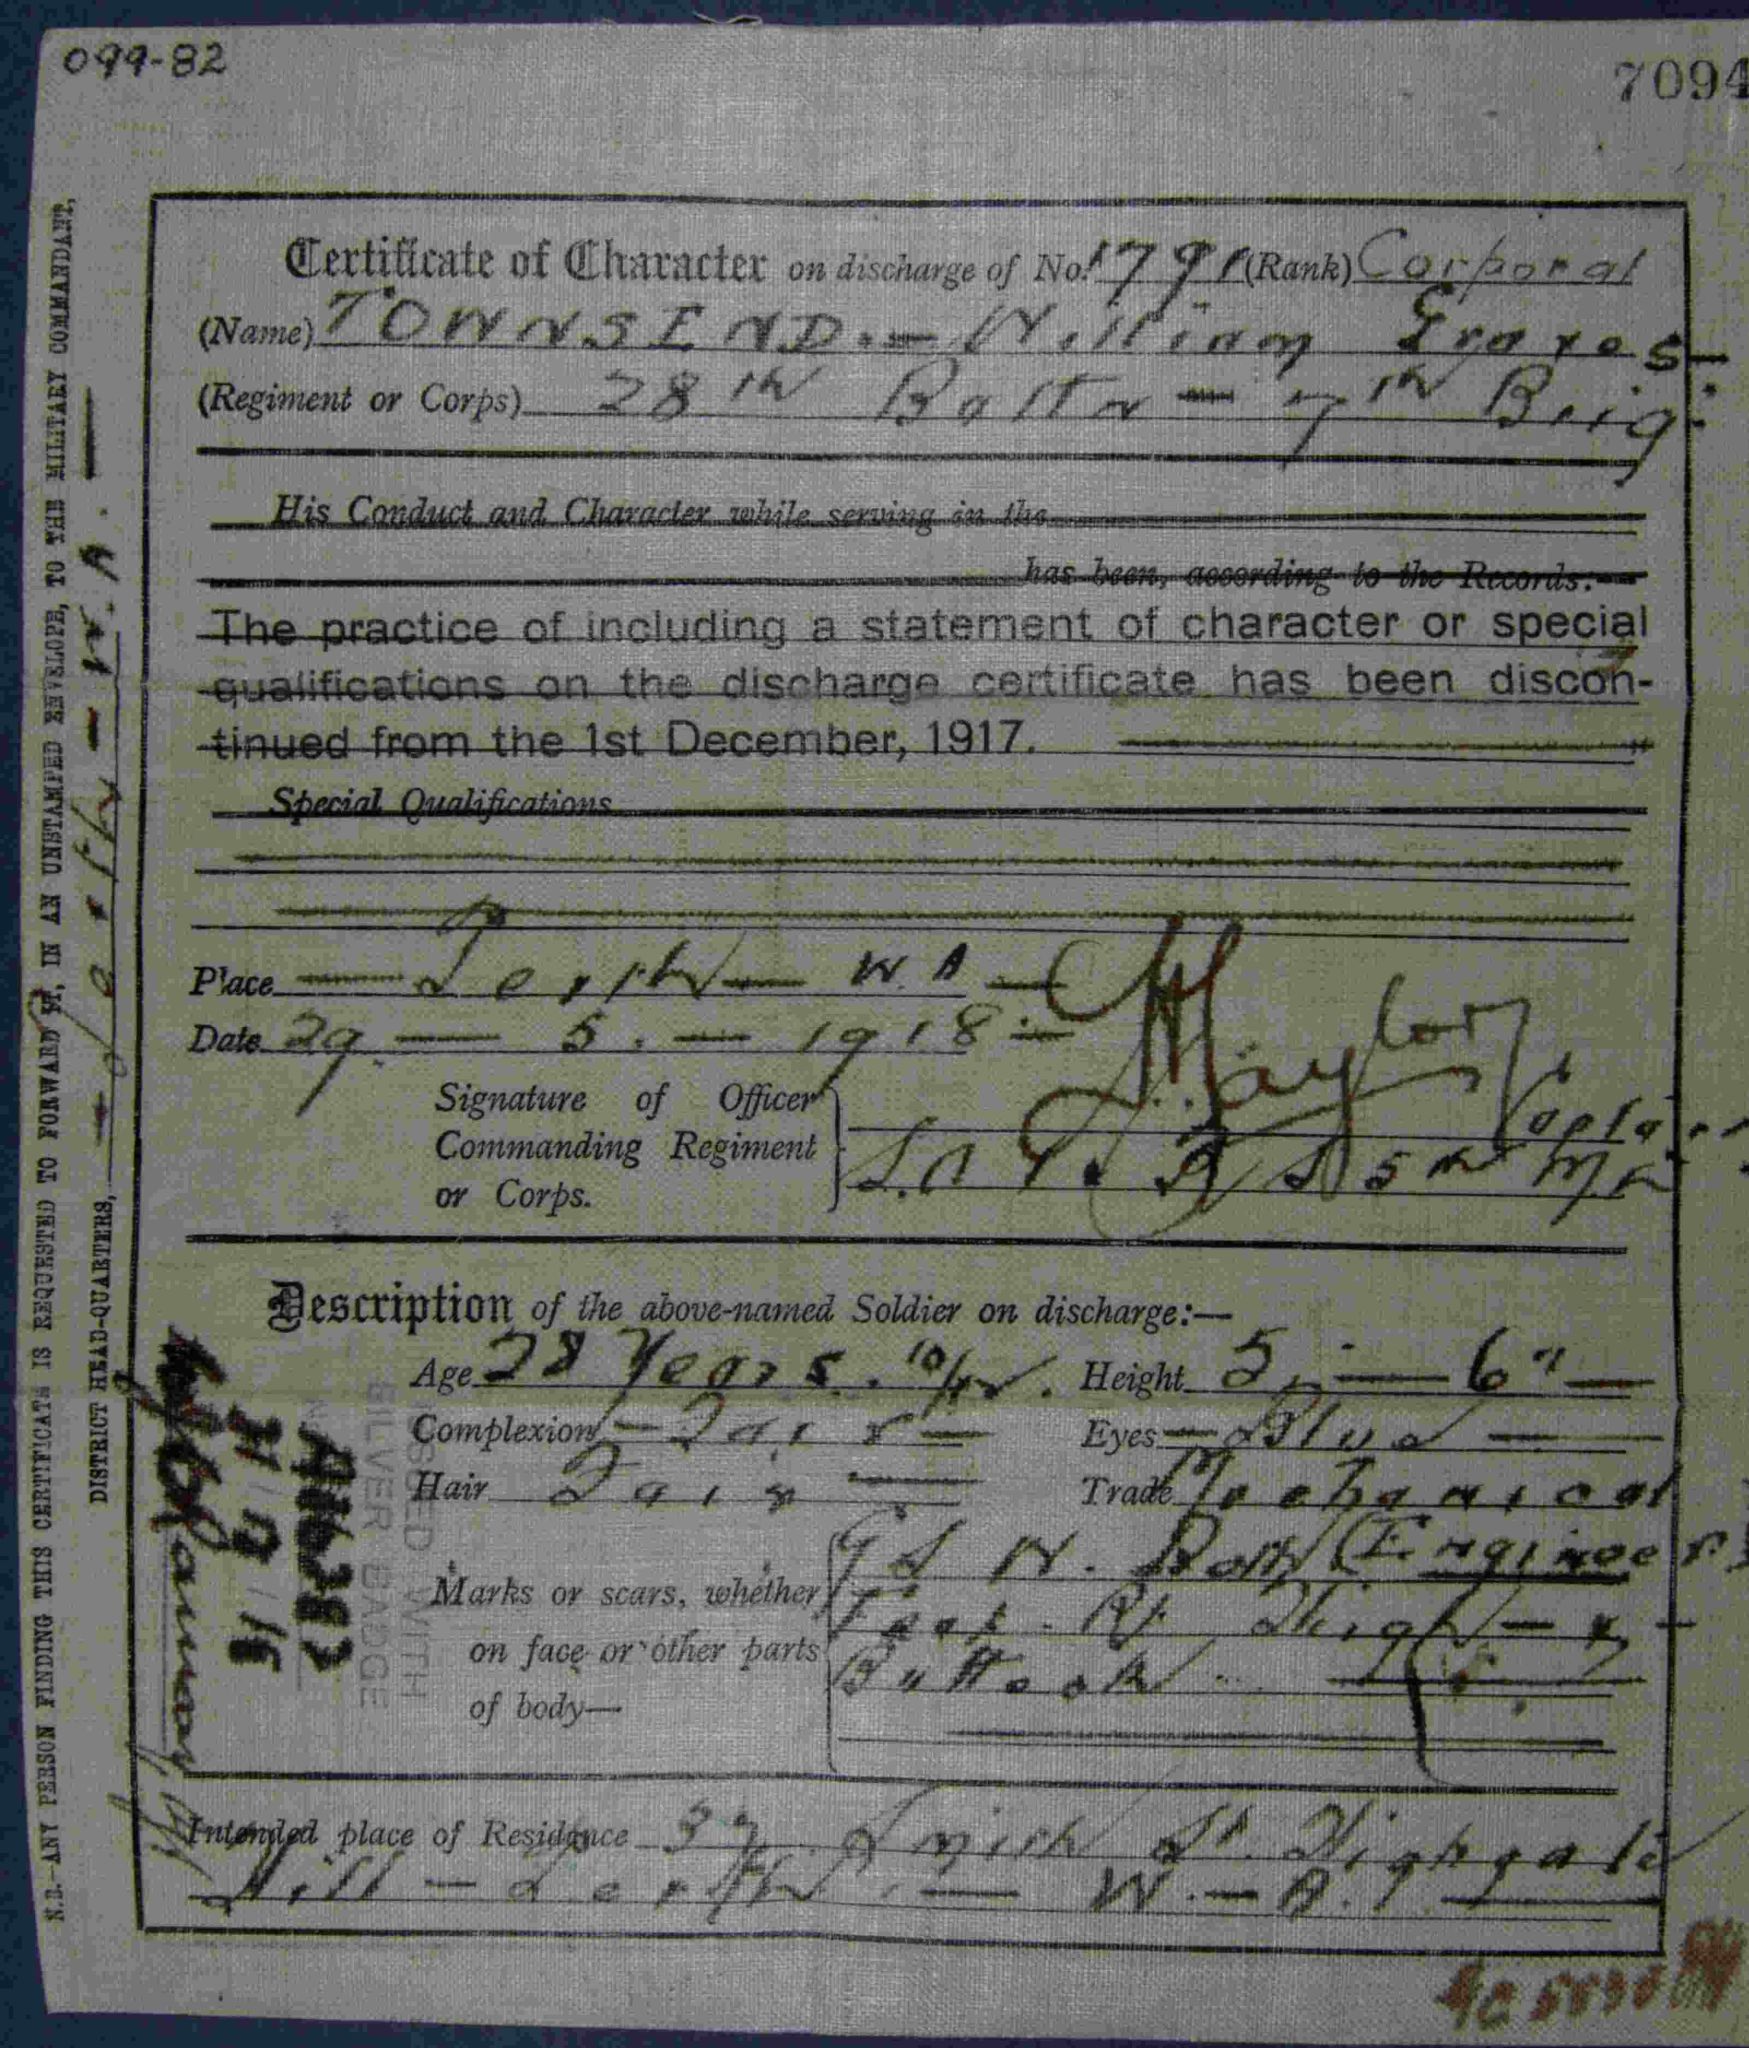 099-82
7094
Certificate of Character on discharge of No. 1791 (Rank) Corporal
(Name) TOWNSEND. — William
(Regiment or Corps) 28th Battn — 7th Brig.
His Conduct and Character while serving in the
has been, according to the Records:—
The practice of including a statement of character or special
qualifications on the discharge certificate has been discon-
tinued from the 1st December, 1917.
Special Qualifications
Place — Perth — W.A —
Date 29 — 5. — 1918 —
Signature of Officer
Commanding Regiment
or Corps.
Taylor
Captain
5th M
Description of the above-named Soldier on discharge:—
Age 28 Years. 10/12. Height 5' — 6" —
Complexion — Fair — Eyes — Blue —
Hair Fair — Trade Mechanical
(Engineer)
Marks or scars, whether
on face or other parts
of body—
G S W. Both
Rt. Thigh —
Buttock
Intended place of Residence Smith St. Highgate
Hill — Perth. — W. — A.
N.B.—ANY PERSON FINDING THIS CERTIFICATE IS REQUESTED TO FORWARD IT, IN AN UNSTAMPED ENVELOPE, TO THE MILITARY COMMANDANT,
DISTRICT HEAD-QUARTERS, — Perth — W. A. —
ISSUED WITH
SILVER BADGE